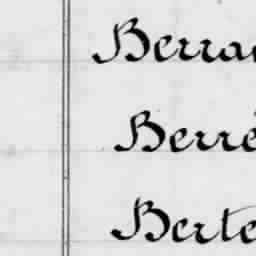 Berra
Berré
Berte